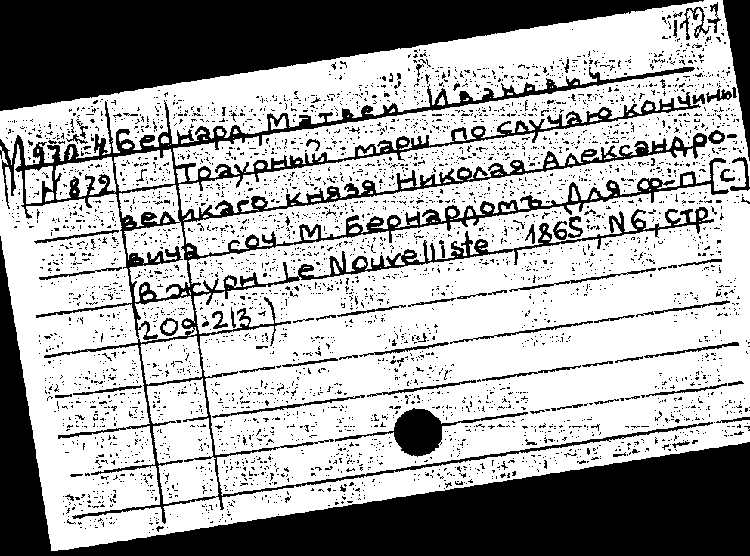 1127
М 970.4 Бернард, Матвей Иванович
Н 872 Траурный марш по случаю кончины
великаго князя Николая Александро-
вича соч М. Бернардомъ. Для ф-п [с]
(В журн. Le Nouvelliste, 1865, N6, стр.
209-213.)